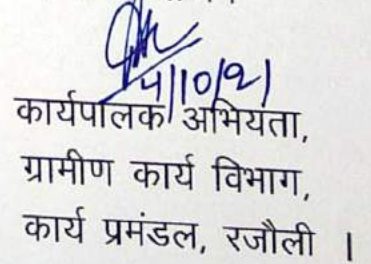 4/10/21
कार्यपालक अभियंता,
ग्रामीण कार्य विभाग,
कार्य प्रमंडल, रजौली ।